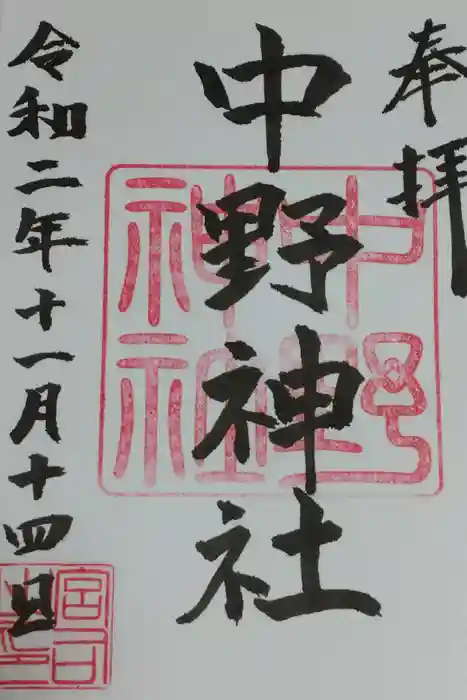 奉拝
中野神社
中野神社
令和二年十一月十四日
宮司之印